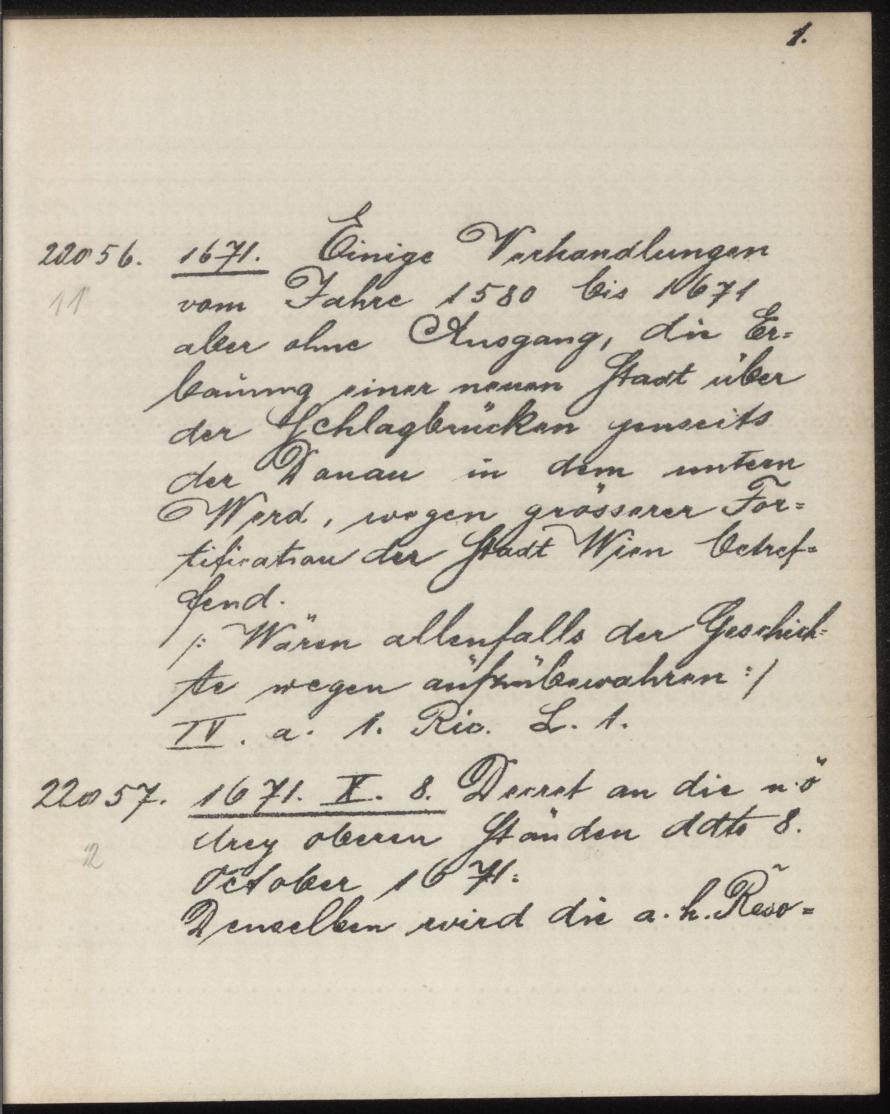 1.
22056. 1671. Einige Verhandlungen
11
vom Jahre 1580 bis 1671
aber ohne Ausgang, die Er=
bauung einer neuen Stadt über
der Schlagbrücken jenseits
der Donau in dem untern
Werd, wegen grösserer For=
tification der Stadt Wien betref=
fend.
/: Wären allenfalls der Geschich=
te wegen aufzubewahren :/
IV. a. 1. Ric. L. 1.
22057. 1671. X. 8. Decret an die n.ö
12
drey oberen Ständen ddto 8.
October 1671.
Denselben wird die a. h. Reso=